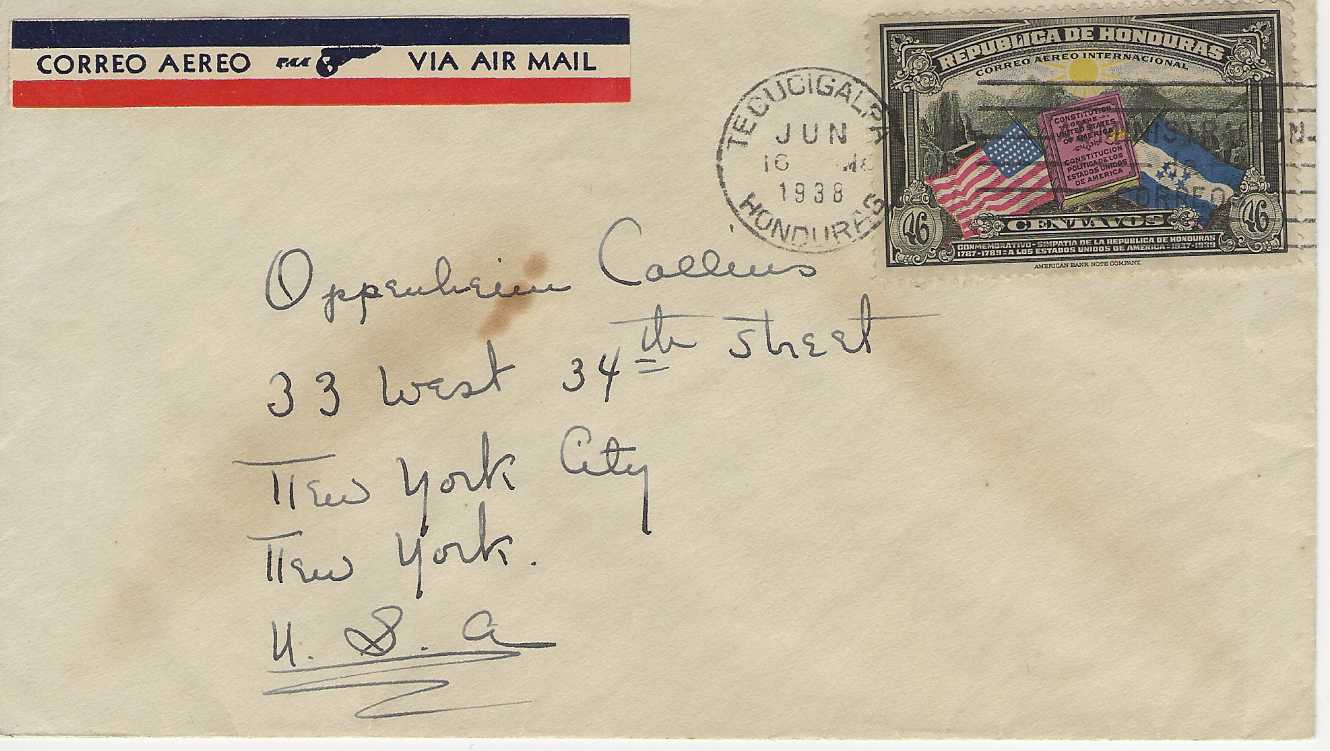 CORREO AEREO PAA VIA AIR MAIL
TEGUCIGALPA
JUN
1938
HONDURAS
REPUBLICA DE HONDURAS
CORREO AEREO INTERNACIONAL
CONSTITUTION
OF THE
UNITED STATES
OF AMERICA
CONSTITUCION
POLITICA DE LOS
ESTADOS UNIDOS
DE AMERICA
46 CENTAVOS 46
CONMEMORATIVO-SIMPATIA DE LA REPUBLICA DE HONDURAS
1787-1789 = A LOS ESTADOS UNIDOS DE AMERICA = 1937-1939
AMERICAN BANK NOTE COMPANY.
Oppenheim Collins
33 West 34th Street
New York City
New York.
U. S. A